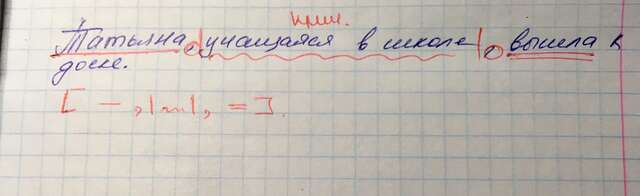 прич.
Татьяна, |учащаяся в школе|, вышла к
доске.
[ — , |~~~| , = ].